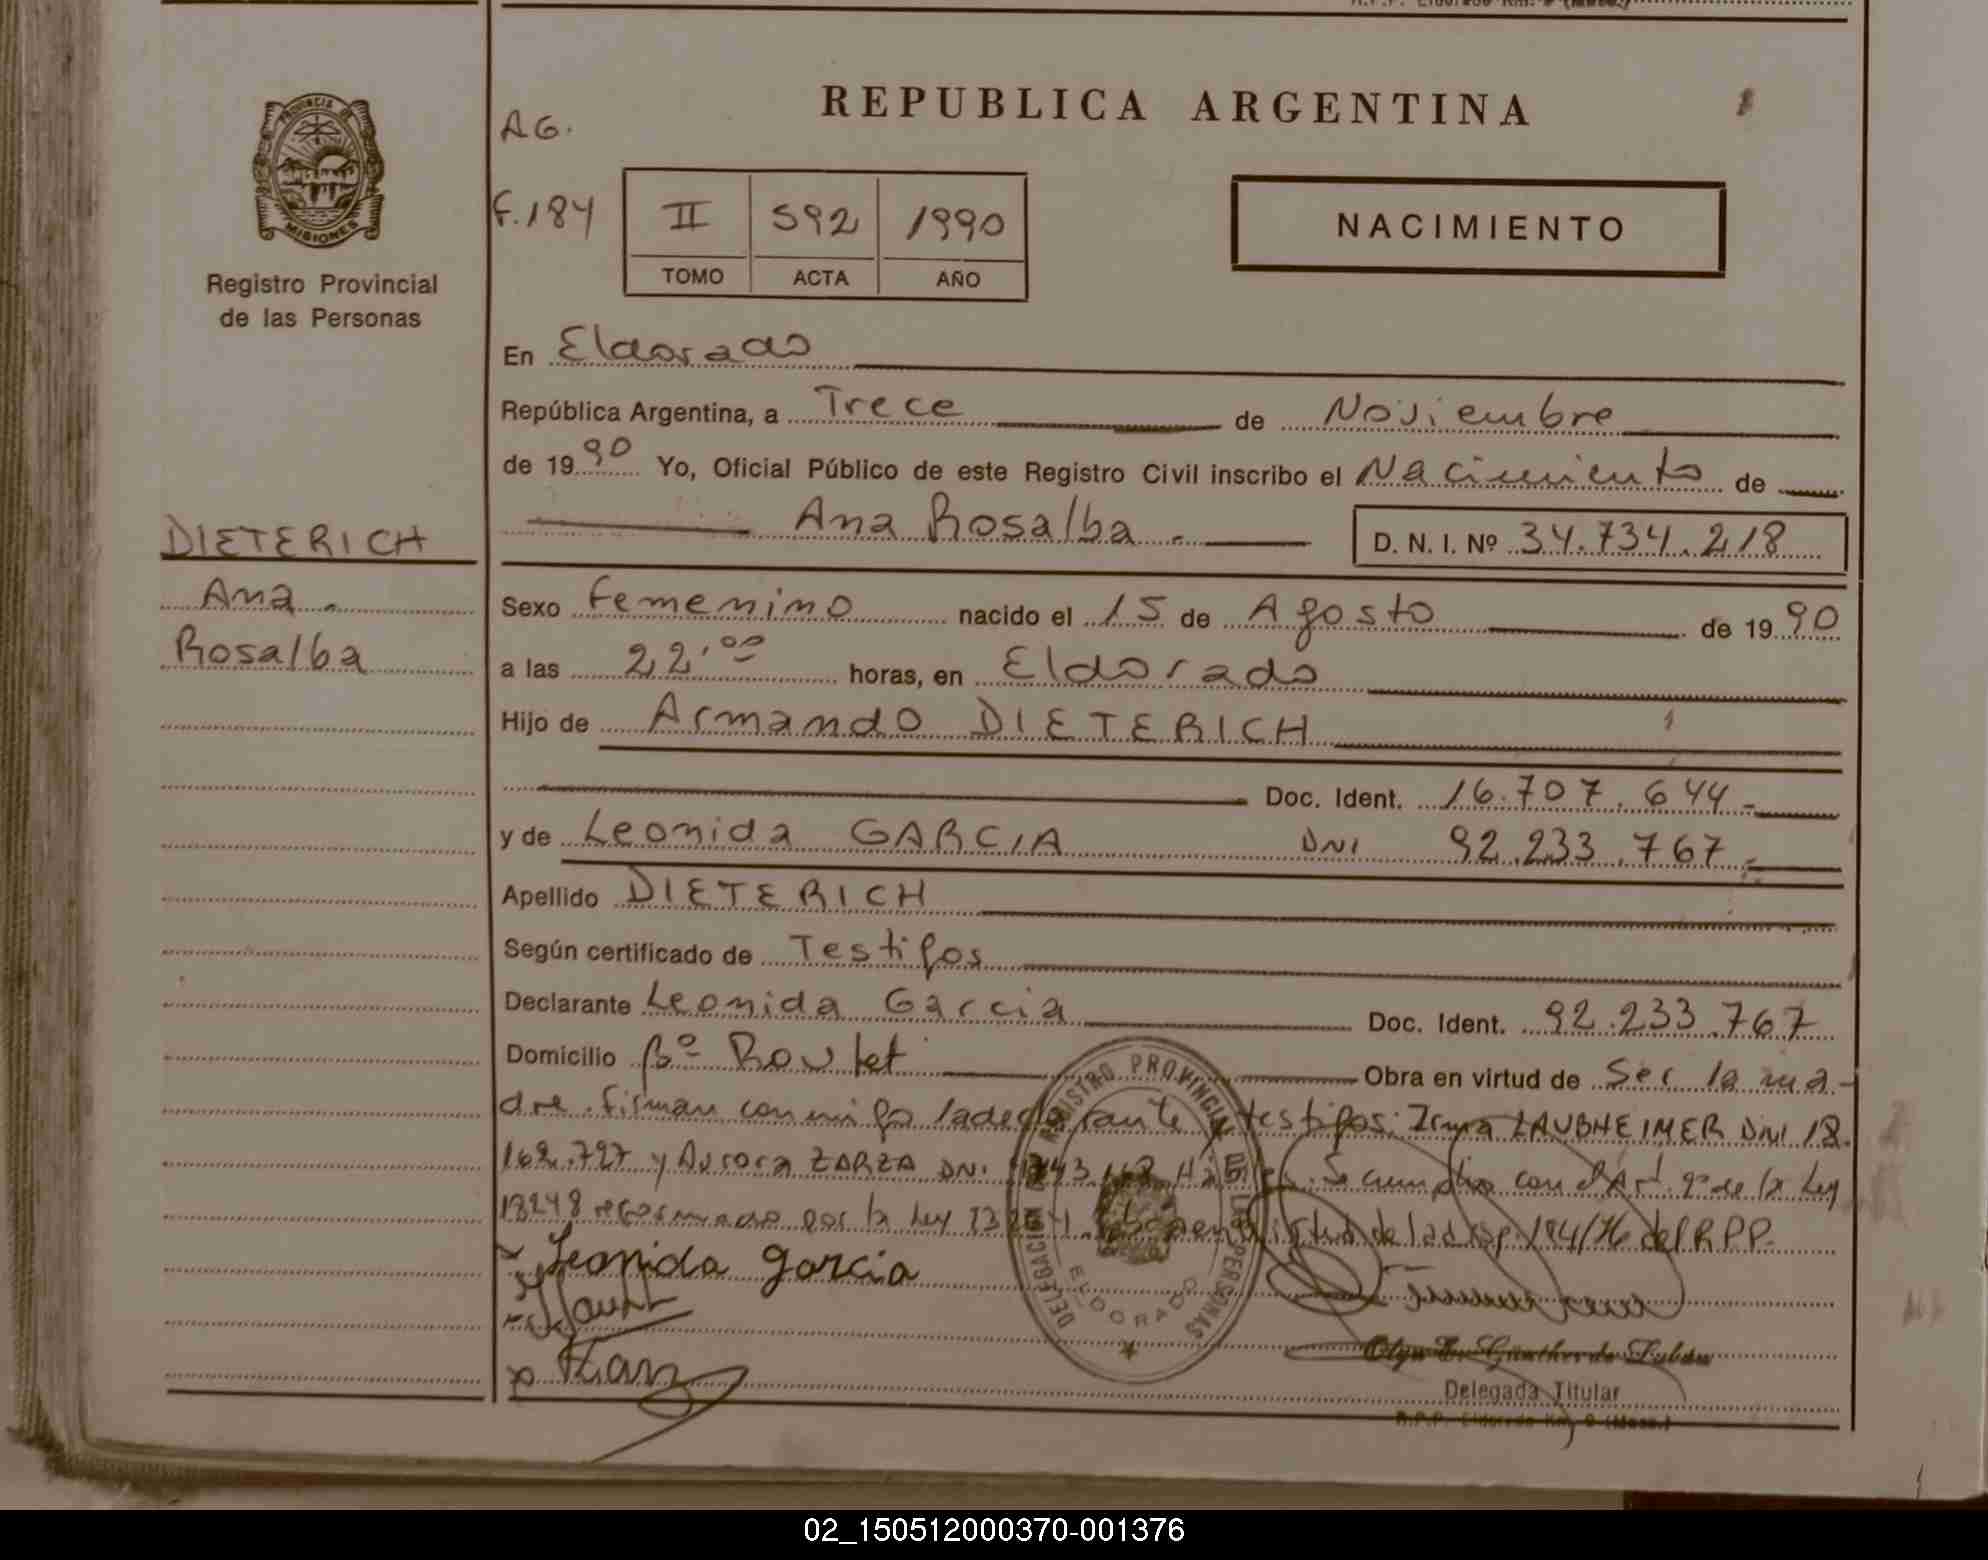 REPUBLICA ARGENTINA
AG.
F.184
II 592 1990
TOMO ACTA AÑO
NACIMIENTO
PROVINCIA DE
MISIONES
Registro Provincial
de las Personas
DIETERICH
Ana
Rosalba
En Eldorado
República Argentina, a Trece de Noviembre
de 1990 Yo, Oficial Público de este Registro Civil inscribo el Nacimiento de
Ana Rosalba.
D. N. I. Nº 34.734.218
Sexo Femenino nacido el 15 de Agosto de 1990
a las 22,00 horas, en Eldorado
Hijo de Armando DIETERICH
Doc. Ident. 16.707.644.-
y de Leonida GARCIA DNI 92.233.767.-
Apellido DIETERICH
Según certificado de Testigos
Declarante Leonida Garcia Doc. Ident. 92.233.767
Domicilio Bº Roulet Obra en virtud de Ser la ma-
dre. Firman conmigo la declarante y testigos: Irma LAUBHEIMER DNI 18.
162.727 y Aurora ZARZA DNI Se cumplio con el Art. 9º de la Ley
13248 reformado por la Ley virtud de la disp. 194/76 del RPP.
Leonida garcia
DELEGACION REGISTRO PROVINCIAL DE LAS PERSONAS
ELDORADO
Delegada Titular
R.P.P. Eldorado Km. 9 (Mnes.)
02_150512000370-001376